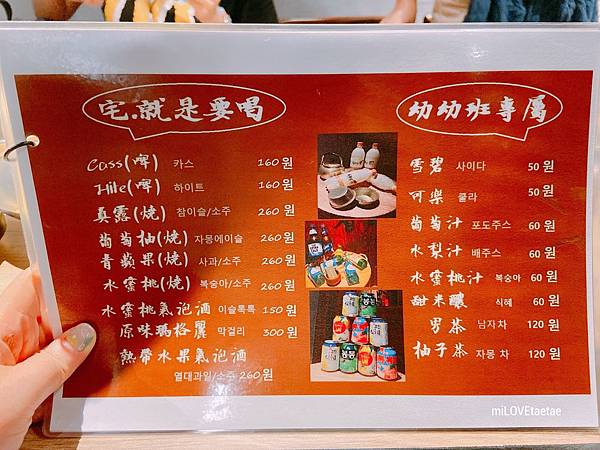 宅.就是要喝
Cass(啤) 카스 160원
Hite(啤) 하이트 160원
真露(燒) 참이슬/소주 260원
葡萄柚(燒) 자몽에이슬 260원
青蘋果(燒) 사과/소주 260원
水蜜桃(燒) 복숭아/소주 260원
水蜜桃氣泡酒 이슬톡톡 150원
原味瑪格麗 막걸리 300원
熱帶水果氣泡酒
열대과일/소주 260원
幼幼班專屬
雪碧 사이다 50원
可樂 콜라 50원
葡萄汁 포도주스 60원
水梨汁 배주스 60원
水蜜桃汁 복숭아 60원
甜米釀 식혜 60원
男茶 남자차 120원
柚子茶 자몽 차 120원
miLOVEtaetae